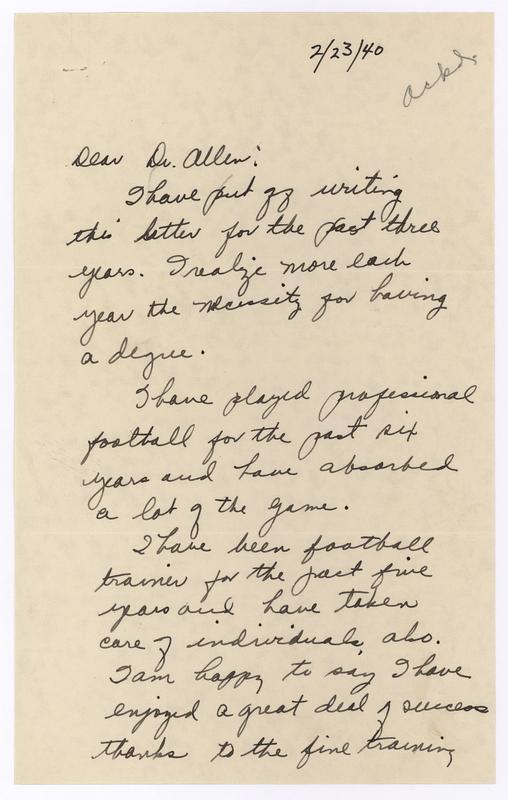 2/23/40
ackd.
Dear Dr. Allen:
I have put off writing
this letter for the past three
years. I realize more each
year the necessity for having
a degree.
I have played professional
football for the past six
years and have absorbed
a lot of the game.
I have been football
trainer for the past five
years and have taken
care of individuals also.
I am happy to say I have
enjoyed a great deal of success
thanks to the fine training